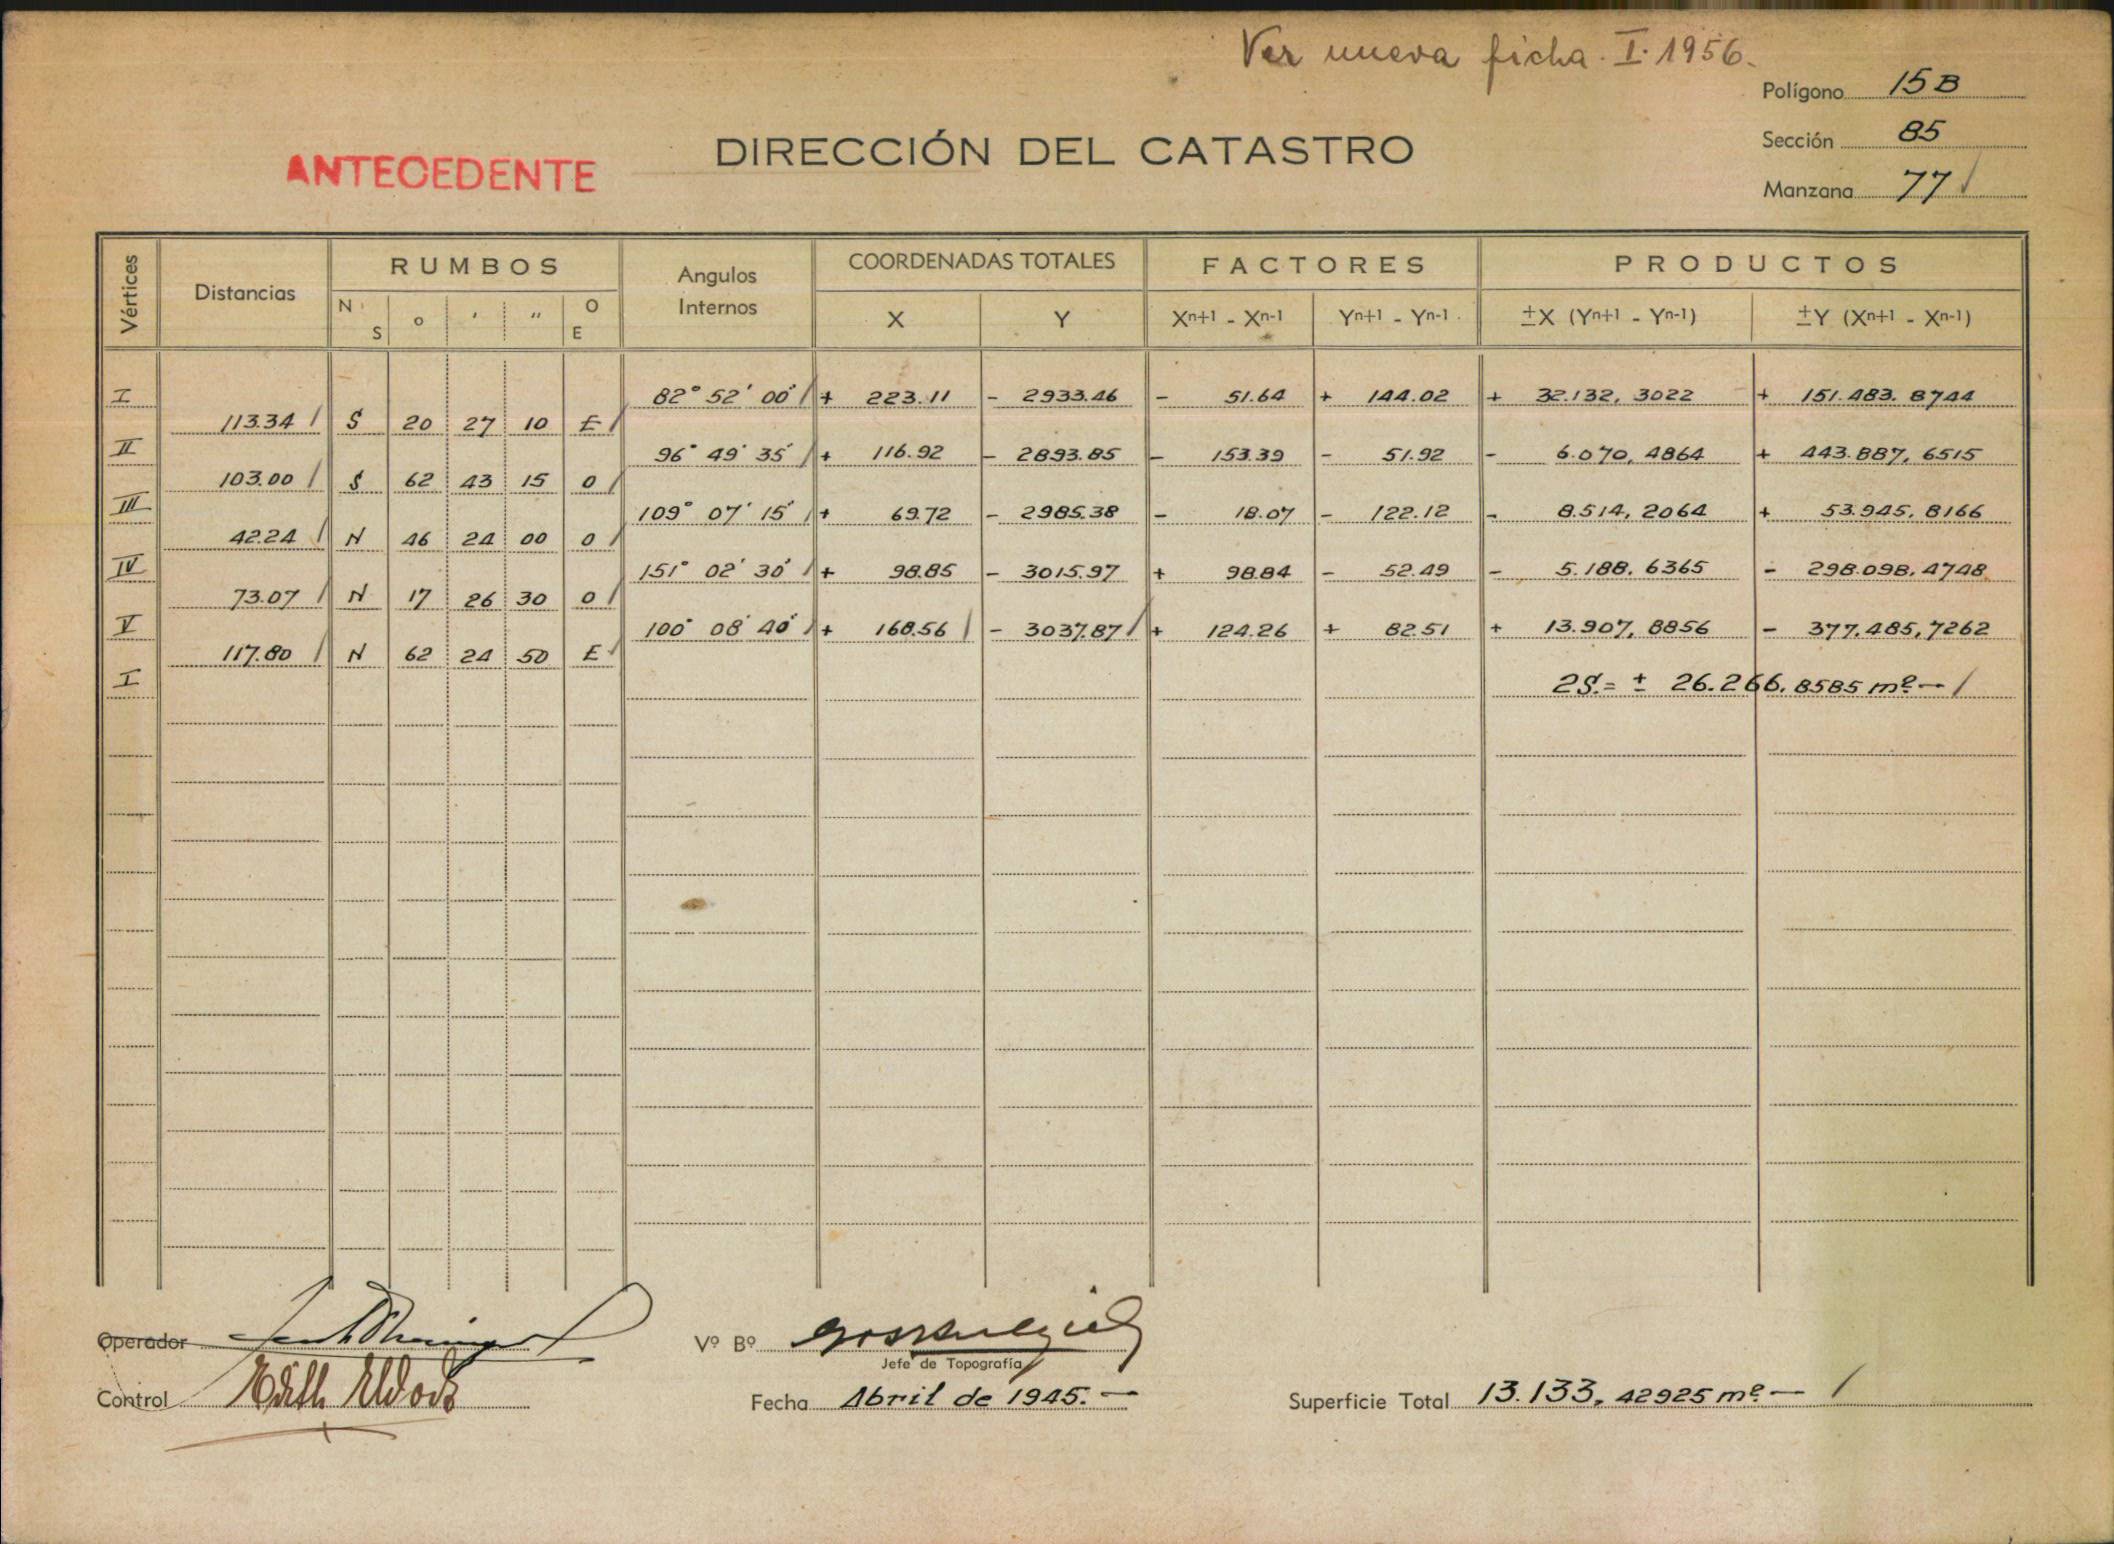 Ver nueva ficha. I. 1956.
Polígono 15 B
ANTECEDENTE
DIRECCIÓN DEL CATASTRO
Sección 85
Manzana 77
Vértices Distancias RUMBOS Angulos Internos COORDENADAS TOTALES FACTORES PRODUCTOS
N S o ' " O E X Y Xn+1 - Xn-1 Yn+1 - Yn-1 ±X (Yn+1 - Yn-1) ±Y (Xn+1 - Xn-1)
I 82° 52' 00" + 223.11 - 2933.46 - 51.64 + 144.02 + 32.132,3022 + 151.483.8744
113.34 S 20 27 10 E
II 96° 49' 35" + 116.92 - 2893.85 - 153.39 - 51.92 - 6.070,4864 + 443.887,6515
103.00 S 62 43 15 O
III 109° 07' 15" + 69.72 - 2985.38 - 18.07 - 122.12 - 8.514,2064 + 53.945,8166
42.24 N 46 24 00 O
IV 151° 02' 30" + 98.85 - 3015.97 + 98.84 - 52.49 - 5.188.6365 - 298.098,4748
73.07 N 17 26 30 O
V 100° 08' 40" + 168.56 - 3037.87 + 124.26 + 82.51 + 13.907,8856 - 377.485,7262
117.80 N 62 24 50 E
I 2S.= ± 26.266,8585 m².-
Operador
Vº Bº
Jefe de Topografía
Control
Fecha Abril de 1945.-
Superficie Total 13.133,42925 m².-